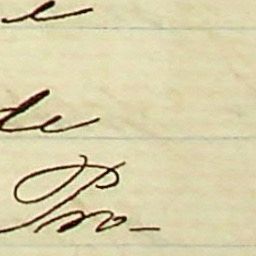 e
de
Pro-